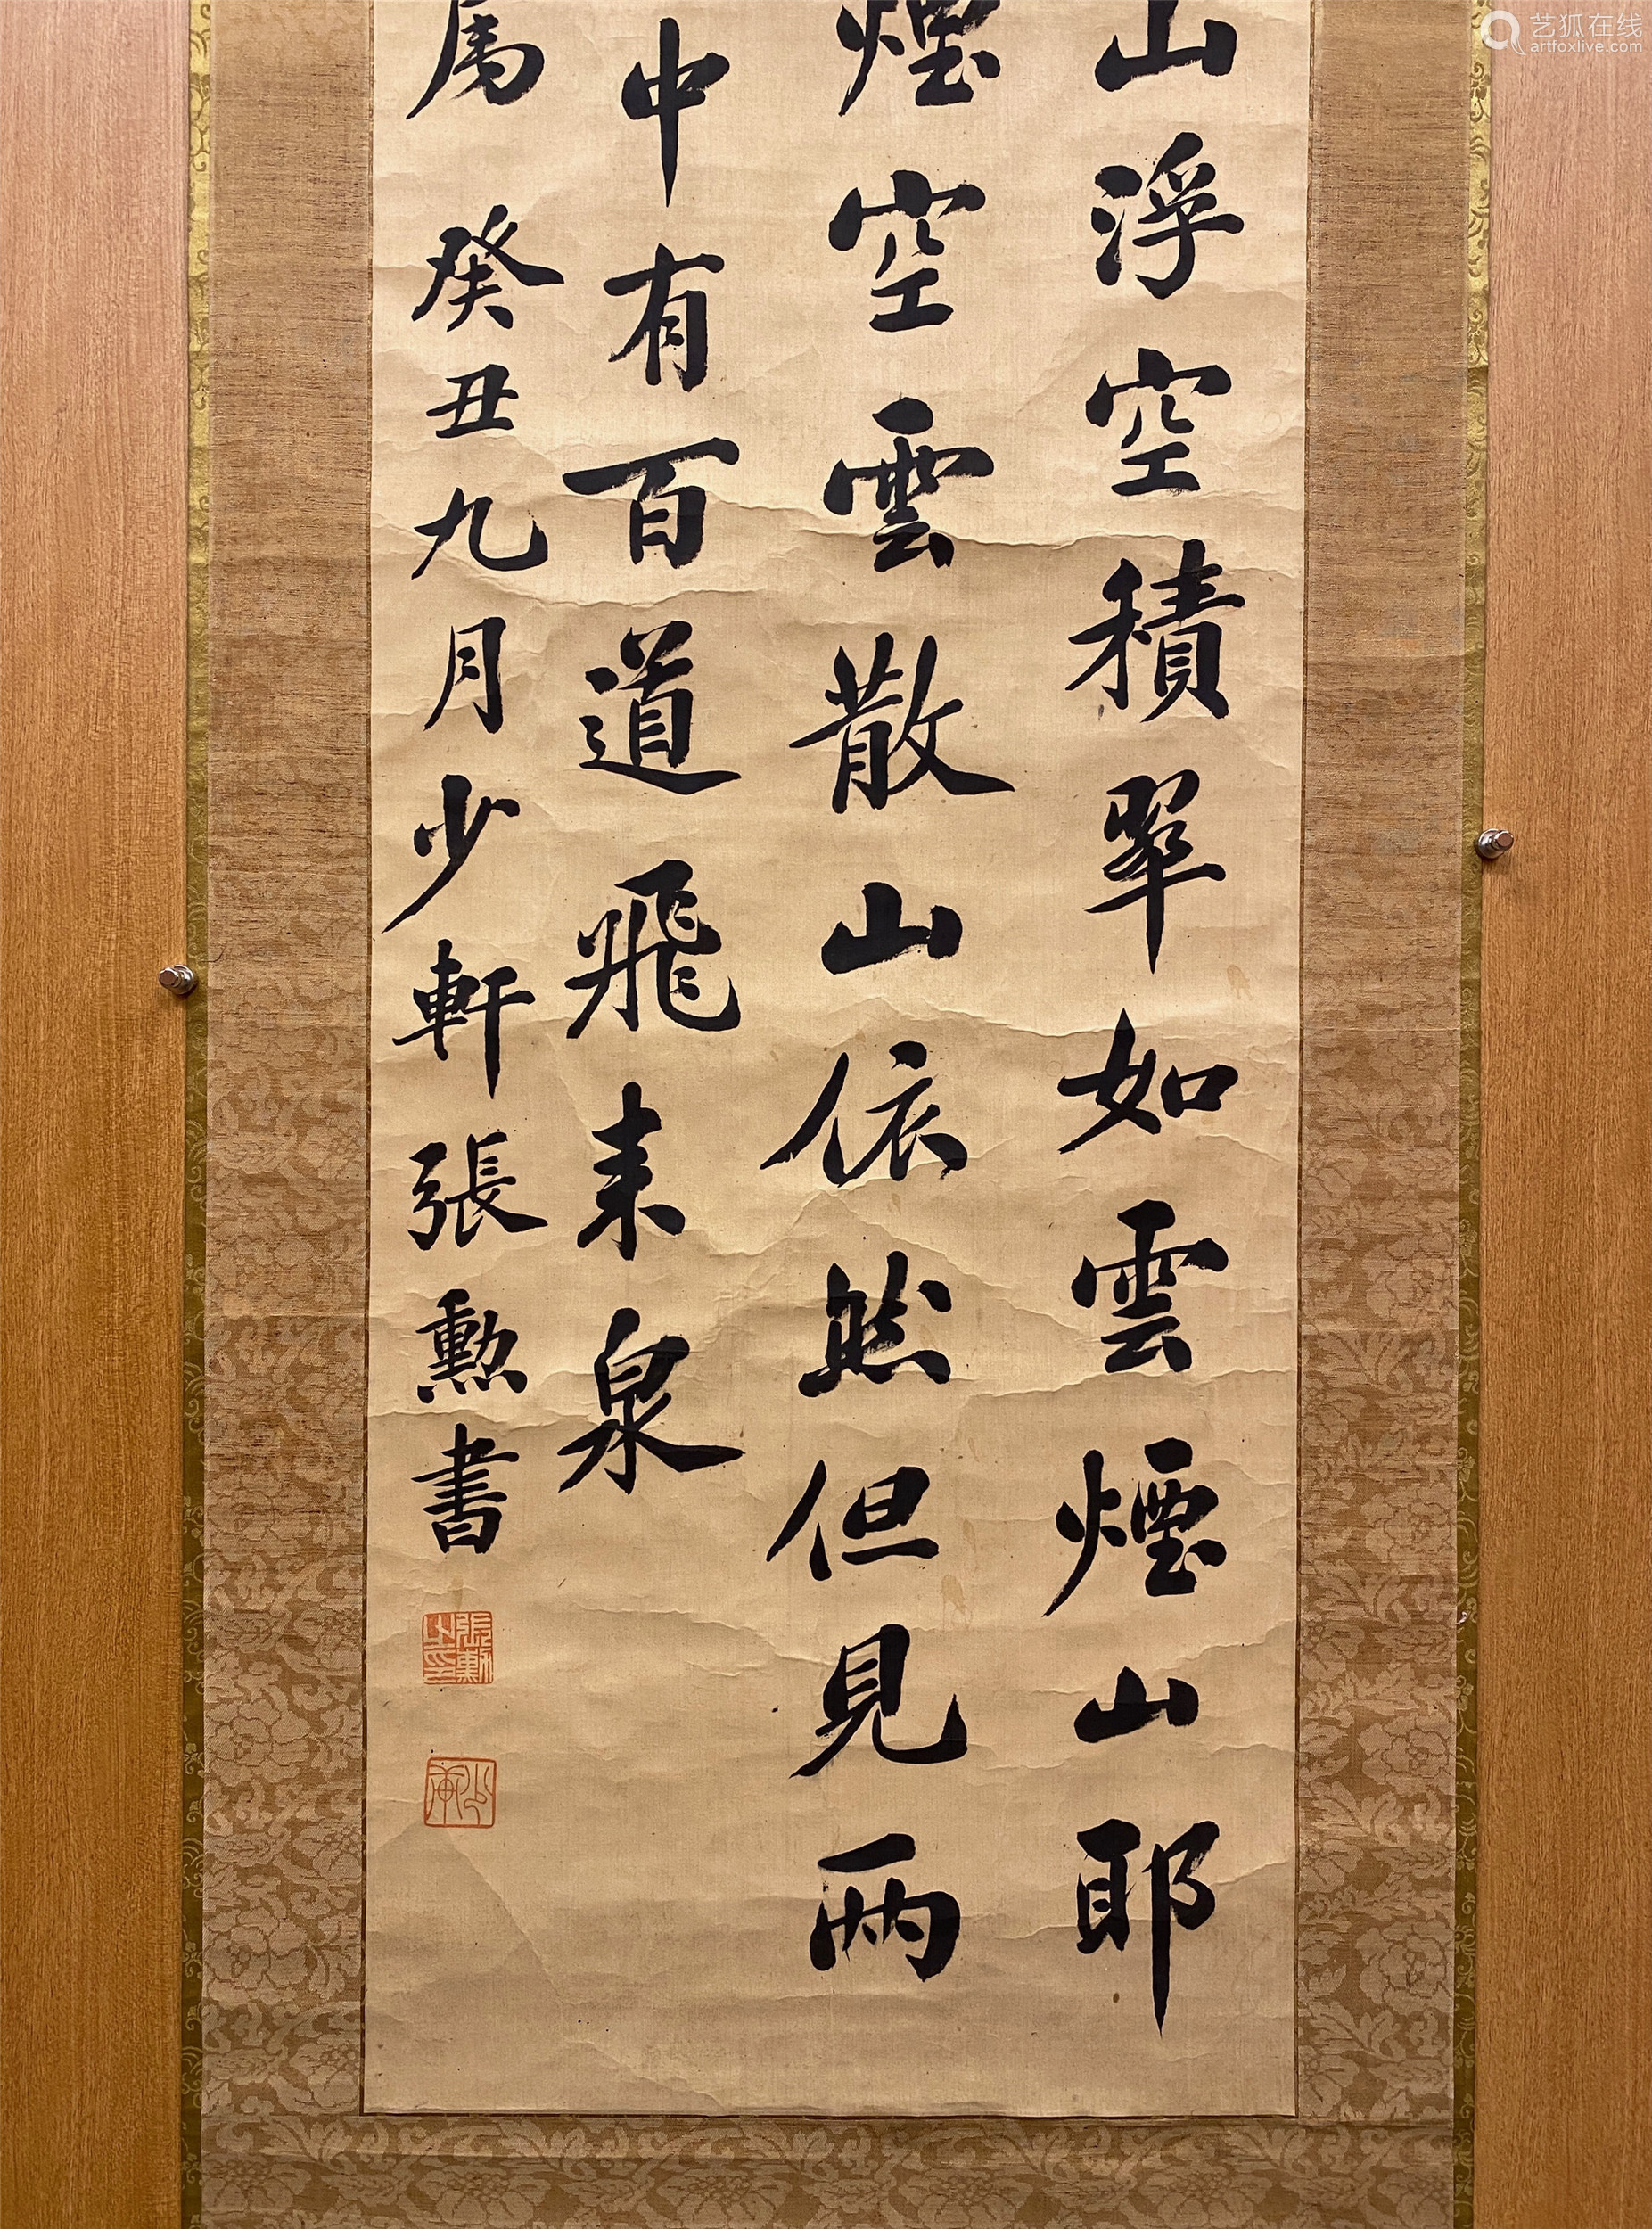 山浮空積翠如雲煙山耶
煙空雲散山依然但見兩
中有百道飛来泉
屬 癸丑九月少軒張勳書
張勳之印
少軒
艺狐在线
artfoxlive.com